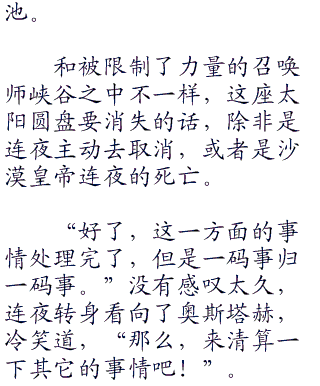 池。
和被限制了力量的召唤
师峡谷之中不一样，这座太
阳圆盘要消失的话，除非是
连夜主动去取消，或者是沙
漠皇帝连夜的死亡。
“好了，这一方面的事
情处理完了，但是一码事归
一码事。”没有感叹太久，
连夜转身看向了奥斯塔赫，
冷笑道，“那么，来清算一
下其它的事情吧！”。